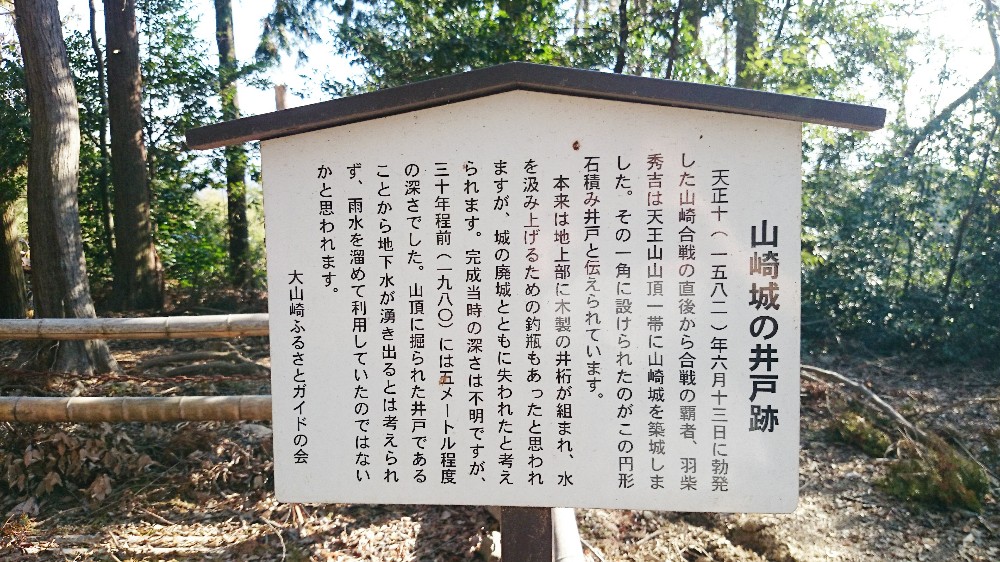 山崎城の井戸跡
天正十（一五八二）年六月十三日に勃発
した山崎合戦の直後から合戦の覇者、羽柴
秀吉は天王山山頂一帯に山崎城を築城しま
した。その一角に設けられたのがこの円形
石積み井戸と伝えられています。
本来は地上部に木製の井桁が組まれ、水
を汲み上げるための釣瓶もあったと思われ
ますが、城の廃城とともに失われたと考え
られます。完成当時の深さは不明ですが、
三十年程前（一九八〇）には五メートル程度
の深さでした。山頂に掘られた井戸である
ことから地下水が湧き出るとは考えられ
ず、雨水を溜めて利用していたのではない
かと思われます。
大山崎ふるさとガイドの会